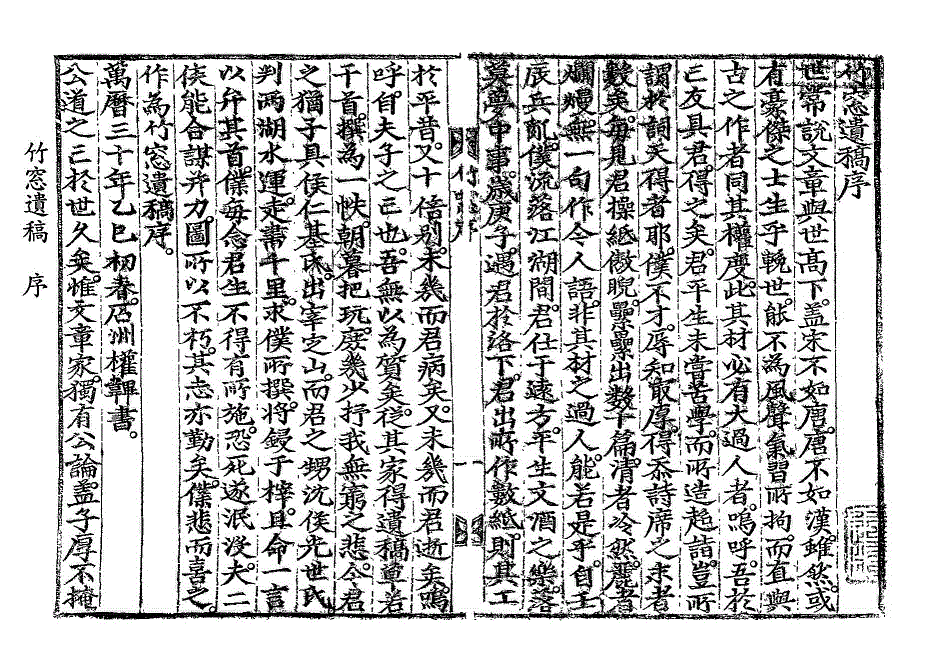 竹窓遺稿序
世常說文章與世高下。盖宋不如唐。唐不如漢。雖然。或
有豪傑之士生乎輓世。能不為風聲氣習所拘。而直與
古之作者同其權度。此其材必有大過人者。嗚呼。吾於
亡友具君。得之矣。君平生未嘗苦學。而所造超詣。豈所
謂於詞天得者耶。僕不才。辱知取厚。得忝詩席之求者
數矣。每見君操紙傲睨。纍纍出數千篇。清者冷然。麗者
爛爛。無一句作今人語。非其材之過人。能若是乎。自壬
辰兵亂。僕流落江湖間。君仕于遠方。平生文酒之樂。落
莫夢中事。歲庚子。遇君於洛下。君出所作數紙。則其工
竹窓序
一
於平昔。又十倍別。未幾而君病矣。又未幾而君逝矣。嗚
呼。自夫子之亡也。吾無以為質矣。從其家得遺稿草若
干首。撰為一帙。朝暮把玩。庶幾少抒我無窮之悲。今君
之猶子具侯仁基氏。出宰文山。而君之甥沈侯光世氏
判两湖水運。走書千里。求僕所撰。將鋟于梓。且命一言
以弁其首。僕每念君生不得有所施。恐死遂泯沒。夫二
侯能合謀并力。圖所以不朽。其志亦勤矣。僕悲而喜之。
作為竹窓遺稿序。
萬曆三十年乙巳初春。石洲權韠書。
公道之亡於世久矣。惟文章家獨有公論。盖子厚不掩
竹窓遺稿 序